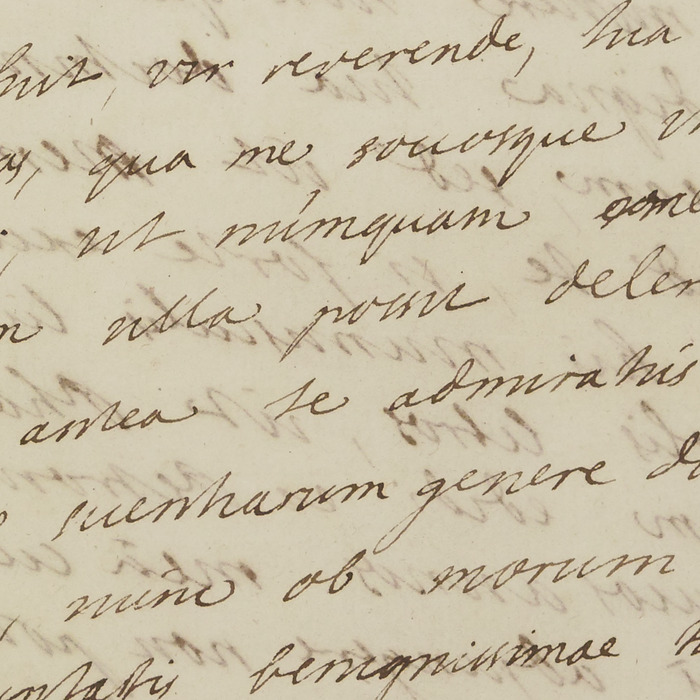 vir reverende, tua
qua me sociosque
ut númquam
ulla possit
antea te admiratus
scientiarum genere
nunc ob morum
benignissimae